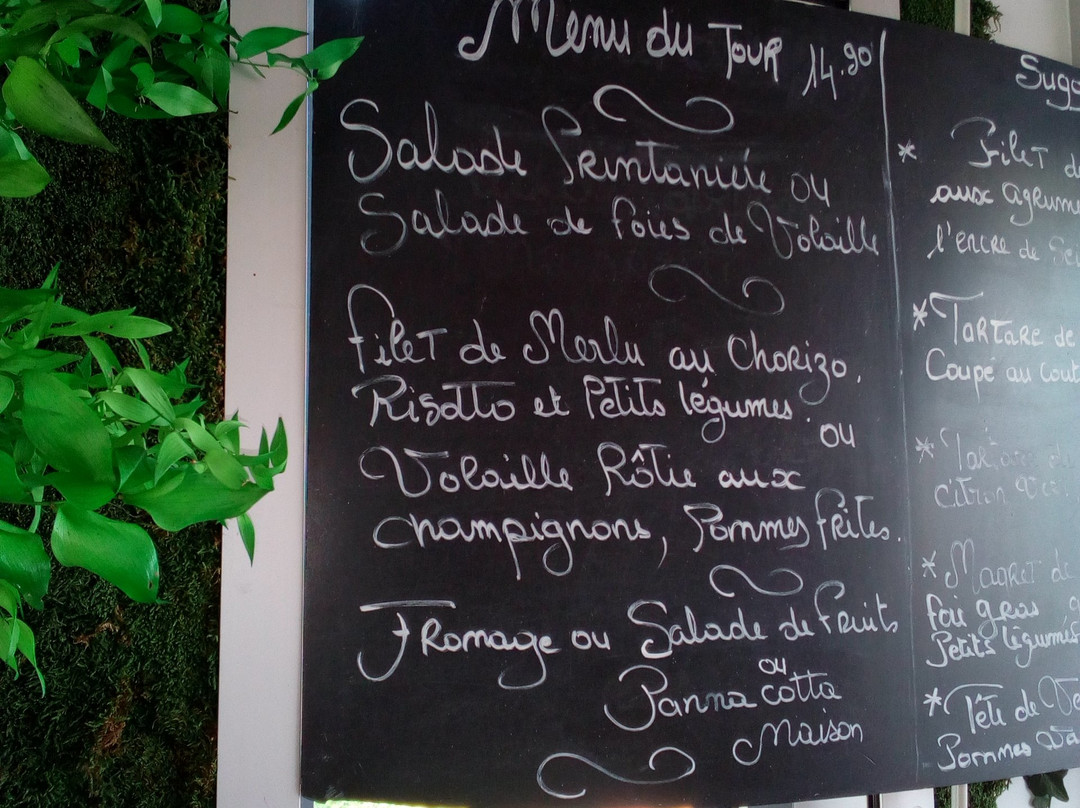 Menu du Tour 14.90
Salade Printanière ou
Salade de foies de Volaille
Filet de Merlu au Chorizo,
Risotto et Petits légumes.
ou
Volaille Rôtie aux
champignons, Pommes frites.
Fromage ou Salade de fruits
ou
Panna cotta
Maison
Sugg
* Filet d
aux agrume
l'encre de Sei
* Tartare de
Coupé au cout
* Tartare de
citron
* Magret de
foie gras
Petits légumes
* Tête de Ve
Pommes Va